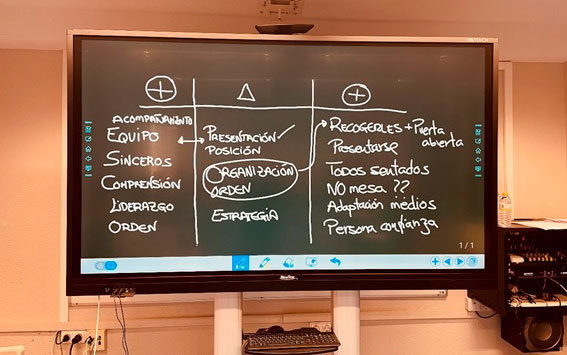 + Δ +
ACOMPAÑAMIENTO
EQUIPO
SINCEROS
COMPRENSIÓN
LIDERAZGO
ORDEN
PRESENTACIÓN
POSICIÓN
ORGANIZACIÓN
ORDEN
ESTRATEGIA
RECOGERLES + Puerta
abierta
Presentarse
Todos sentados
NO mesa ??
Adaptación medios
Persona confianza
1/1